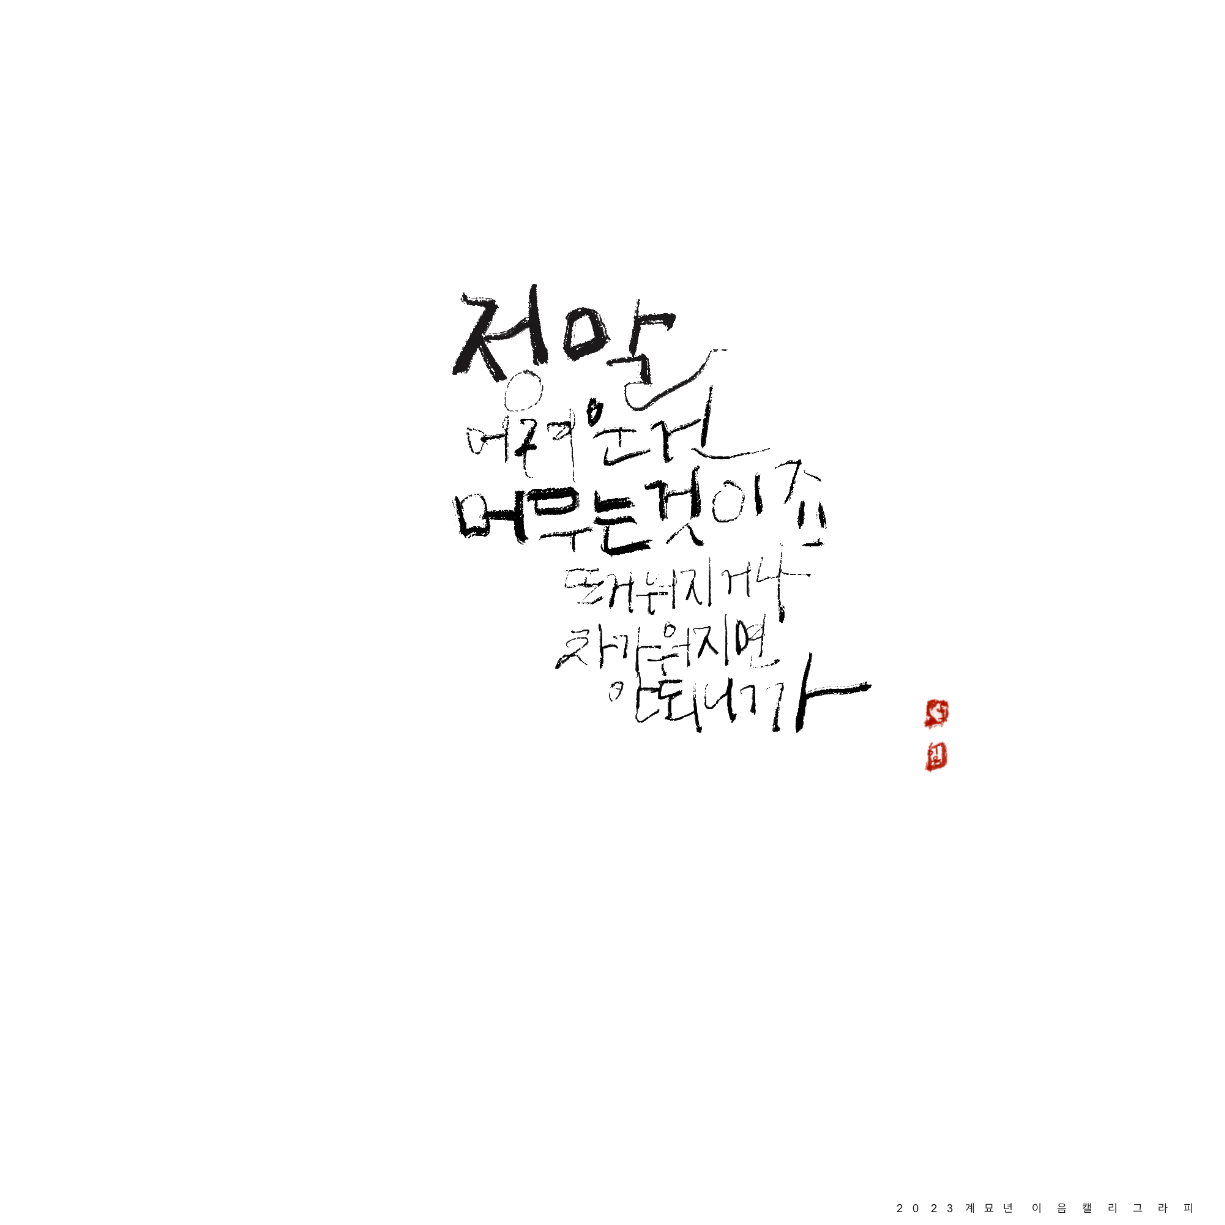 정말
어려운건
머무는것이죠
뜨거워지거나
차가워지면
안되니까
2023계묘년 이음캘리그라피